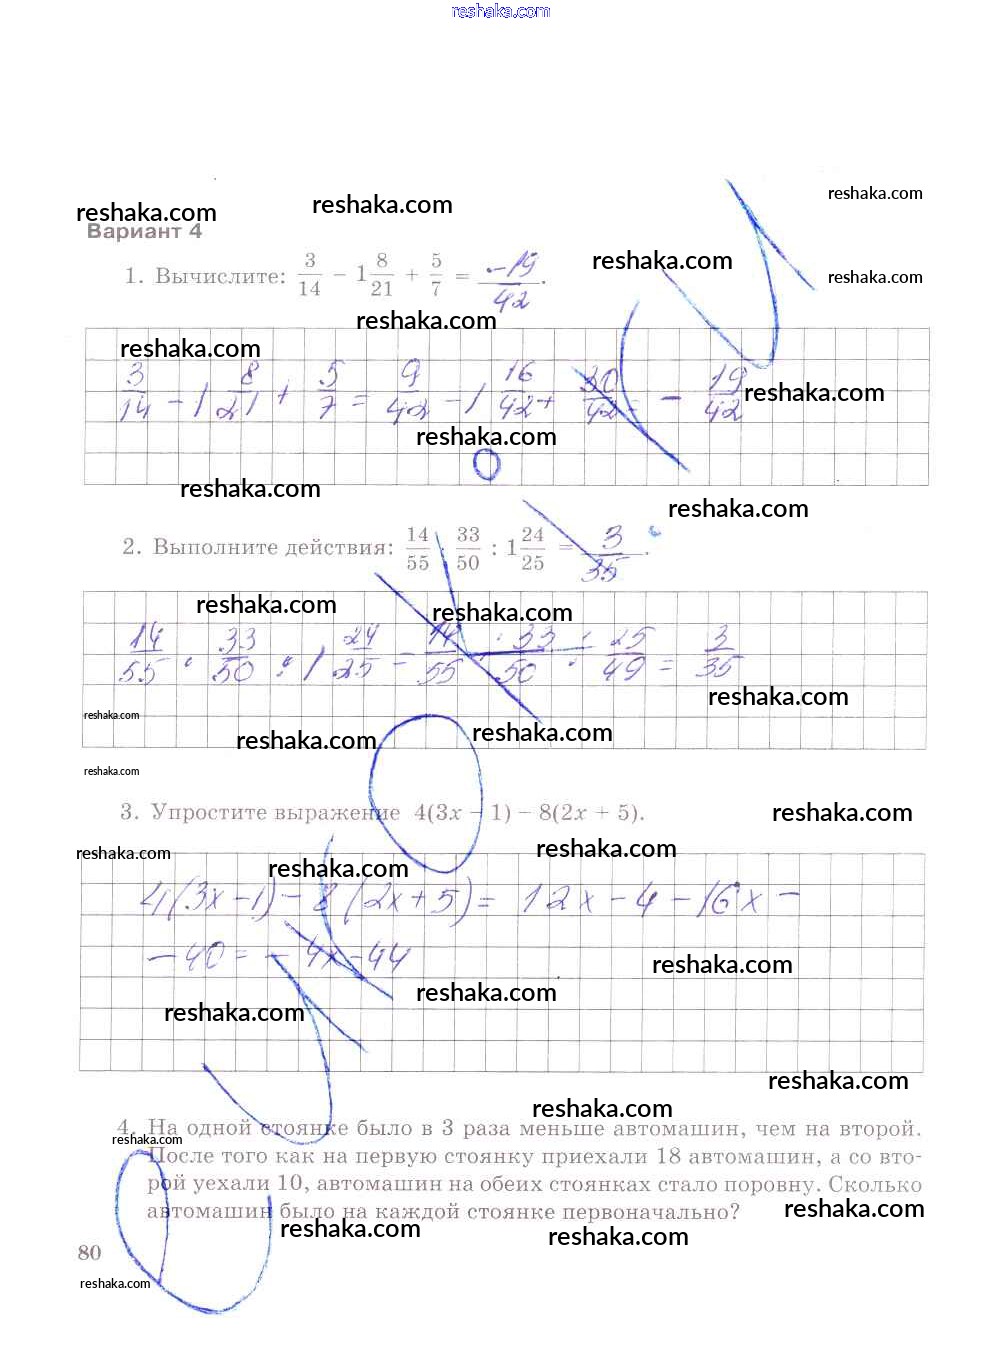 reshaka.com
reshaka.com
reshaka.com reshaka.com
Вариант 4
reshaka.com
1. Вычислите: 3/14 − 1 8/21 + 5/7 = −19/42.
reshaka.com
reshaka.com
reshaka.com
3/14 − 1 8/21 + 5/7 = 9/42 − 1 16/42 + 30/42 = − 19/42
reshaka.com
reshaka.com
reshaka.com
reshaka.com
2. Выполните действия: 14/55 · 33/50 : 1 24/25 = 3/35.
reshaka.com reshaka.com
14/55 · 33/50 : 1 24/25 = 14/55 · 33/50 · 25/49 = 3/35
reshaka.com
reshaka.com
reshaka.com reshaka.com
reshaka.com
3. Упростите выражение 4(3x − 1) − 8(2x + 5).
reshaka.com
reshaka.com reshaka.com
reshaka.com
4(3x−1) − 8(2x+5) = 12x − 4 − 16x −
− 40 = − 4x − 44
reshaka.com
reshaka.com
reshaka.com
reshaka.com
reshaka.com
4. На одной стоянке было в 3 раза меньше автомашин, чем на второй.
reshaka.com
После того как на первую стоянку приехали 18 автомашин, а со вто-
рой уехали 10, автомашин на обеих стоянках стало поровну. Сколько
автомашин было на каждой стоянке первоначально?
reshaka.com
reshaka.com reshaka.com
80
reshaka.com